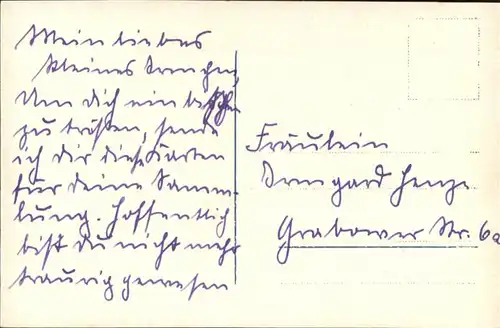 Mein liebes
kleines Irmchen,
Um dich ein bißchen
zu trösten, sende
ich dir diese Karten
für deine Samm-
lung. Hoffentlich
bist Du nicht mehr
traurig gewesen
Fräulein
Irmgard Henze
Grabower Str. 6a